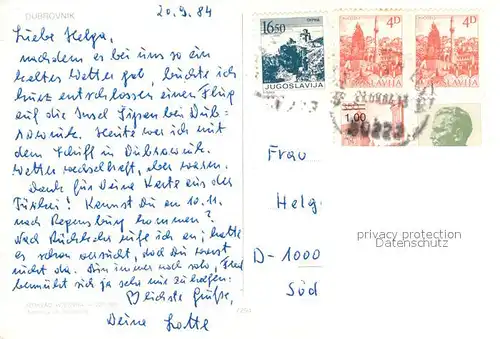 DUBROVNIK
20.9.84
Liebe Helga,
nachdem es bei uns so ein
kaltes Wetter gab, buchte ich
kurz entschlossen einen Flug
auf die Insel Šipan bei Dub-
rownik. Heute war ich mit
dem Schiff in Dubrownik.
Wetter wechselhaft, aber warm.
Danke für Deine Karte aus der
Türkei! Kannst Du am 10.11.
nach Regensburg kommen?
Nach Rückkehr rufe ich an; hatte
es schon versucht, doch Du warst
nicht da. Bin immer noch solo, Fred
bemüht sich ja sehr mir zu helfen.
Herzlichste Grüße,
Deine Lotte
16.50
JUGOSLAVIJA
4D
JUGOSLAVIJA
4D
JUGOSLAVIJA
1.00
Frau
Helg
D-1000
Süd
privacy protection
Datenschutz